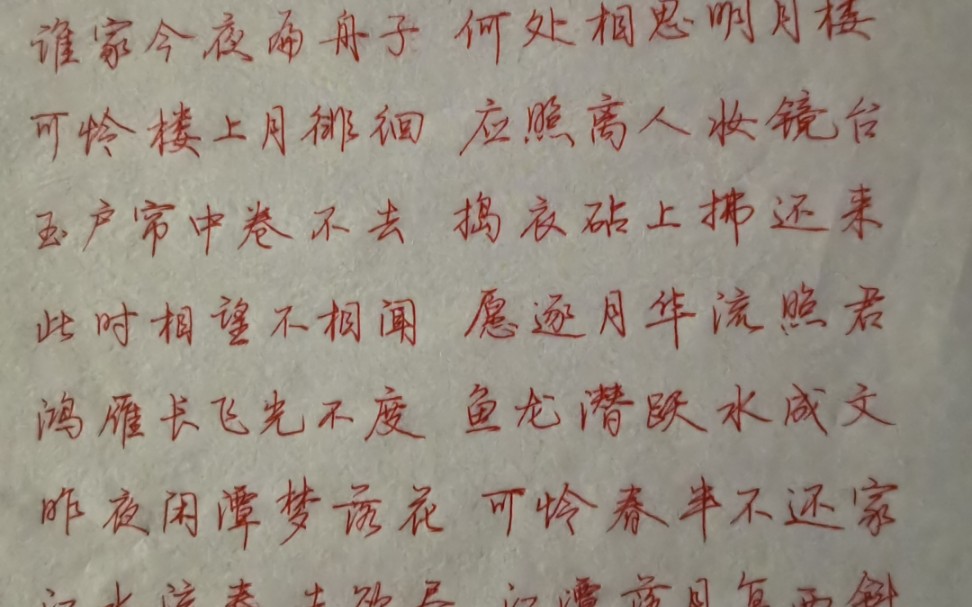 谁家今夜扁舟子 何处相思明月楼
可怜楼上月徘徊 应照离人妆镜台
玉户帘中卷不去 捣衣砧上拂还来
此时相望不相闻 愿逐月华流照君
鸿雁长飞光不度 鱼龙潜跃水成文
昨夜闲潭梦落花 可怜春半不还家
江水流春去欲尽 江潭落月复西斜